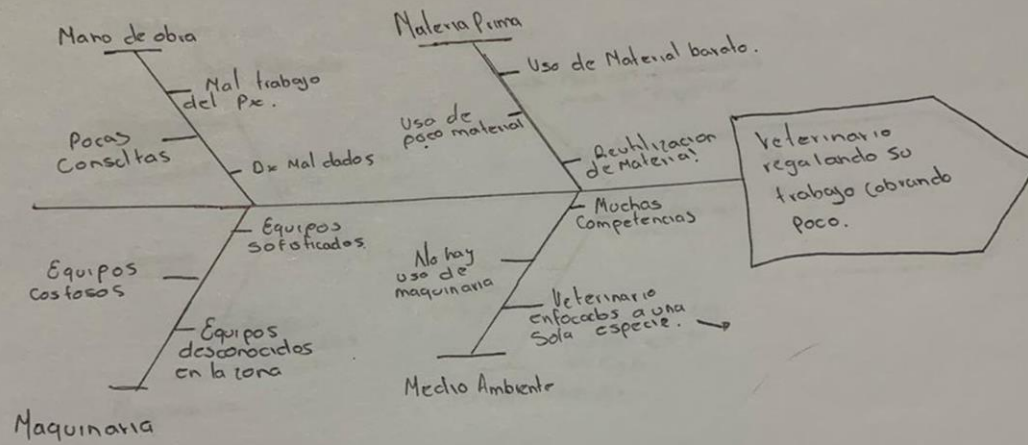 Mano de obra
Mal trabajo
del Px.
Pocas
Consultas
Dx Mal dados
Materia Prima
Uso de Material barato.
Uso de
poco material
Reutilizacion
de Material.
Veterinario
regalando su
trabajo Cobrando
poco.
Equipos
sofisticados
Equipos
costosos
Equipos
desconocidos
en la zona
Maquinaria
Muchas
Competencias
No hay
uso de
maquinaria
Veterinario
enfocados a una
Sola especie.
Medio Ambiente